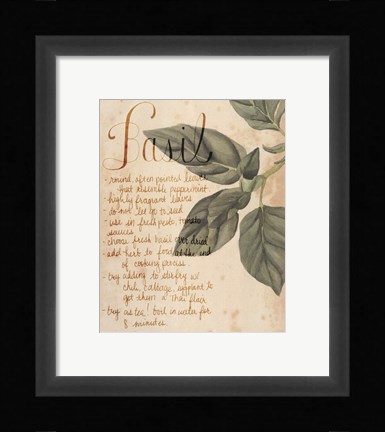 Basil
- round, often pointed leaves
that resemble peppermint
- highly fragrant leaves
- do not let go to seed
- use in fresh pesto, tomato
sauces
- choose fresh basil over dried
- add herb to food at the end
of cooking process
- try adding to stirfry w/
chili, cabbage, eggplant to
get them a Thai flair
- try as tea! boil in water for
8 minutes.